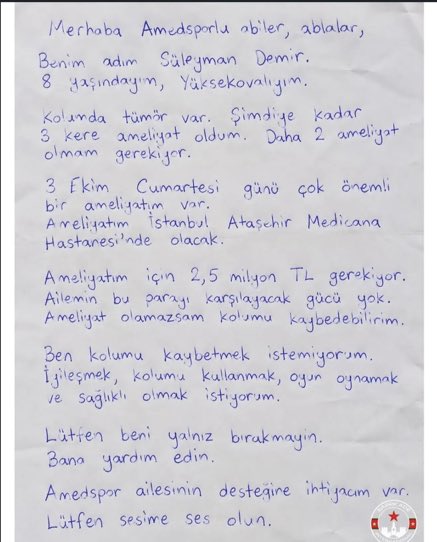 Merhaba Amedsporlu abiler, ablalar,
Benim adım Süleyman Demir.
8 yaşındayım, Yüksekovalıyım.
Kolumda tümör var. Şimdiye kadar
3 kere ameliyat oldum. Daha 2 ameliyat
olmam gerekiyor.
3 Ekim Cumartesi günü çok önemli
bir ameliyatım var.
Ameliyatım İstanbul Ataşehir Medicana
Hastanesi'nde olacak.
Ameliyatım için 2,5 milyon TL gerekiyor.
Ailemin bu parayı karşılayacak gücü yok.
Ameliyat olamazsam kolumu kaybedebilirim.
Ben kolumu kaybetmek istemiyorum.
İyileşmek, kolumu kullanmak, oyun oynamak
ve sağlıklı olmak istiyorum.
Lütfen beni yalnız bırakmayin.
Bana yardım edin.
Amedspor ailesinin desteğine ihtiyacım var.
Lütfen sesime ses olun.